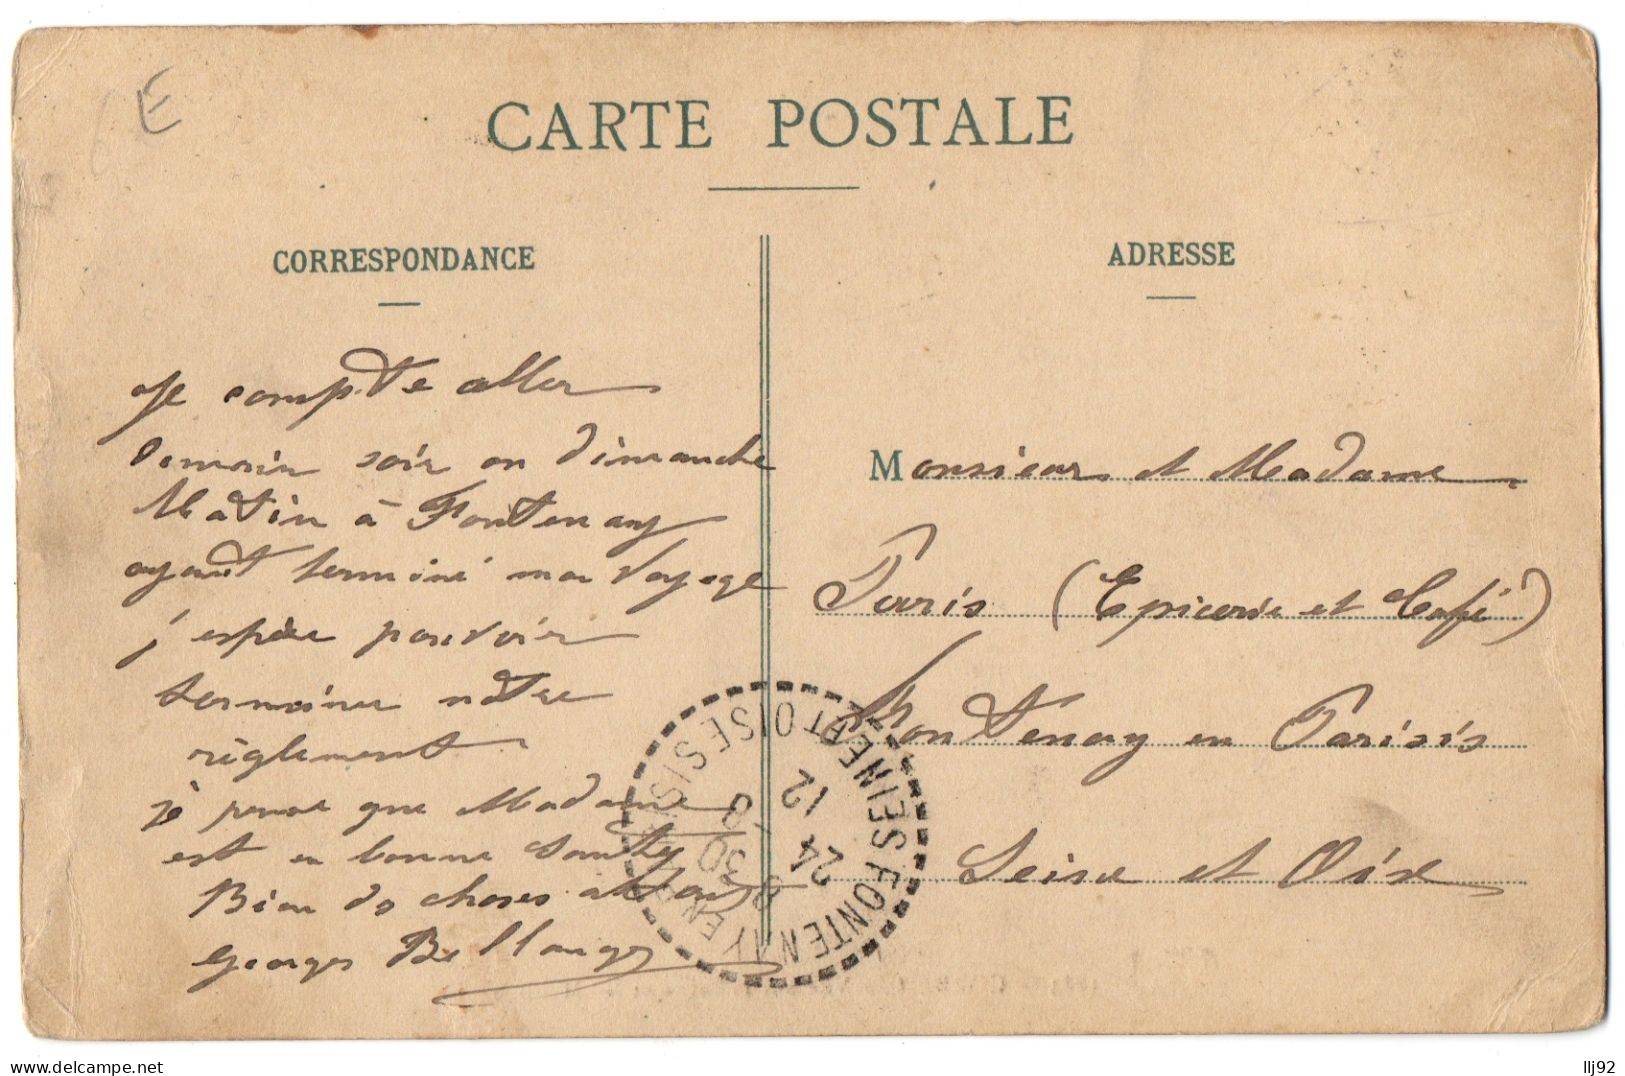 E
CARTE POSTALE
CORRESPONDANCE
Je compte aller
Demain soir ou Dimanche
Matin à Fontenay
ayant terminé mon Voyage
j'espère pouvoir
terminer nôtre
règlement
je pense que Madame
est en bonne Santé
Bien de choses à tous
Georges Bellanger
ADRESSE
Monsieur et Madame
Paris (Epicerie et Café)
Fontenay en Parisis
Seine et Oise
FONTENAY EN PARISIS SEINE ET OISE
24
12
llj92